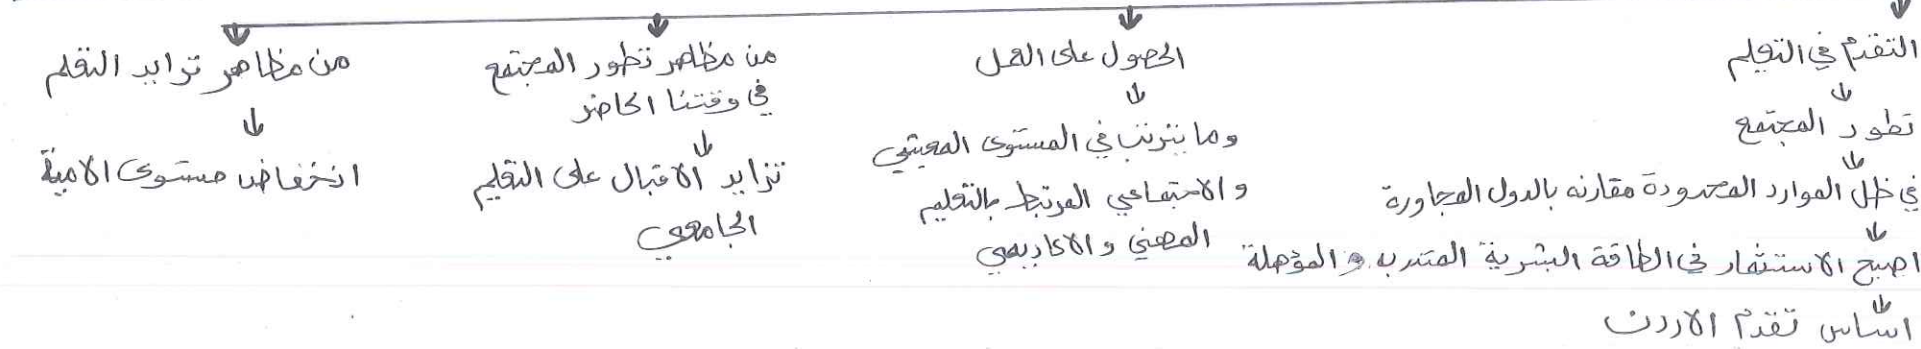 التقدم في التعليم
تطور المجتمع
في ظل الموارد المحدودة مقارنه بالدول المجاورة
اصبح الاستثمار في الطاقة البشرية المتدربه و المؤهلة
اساس تقدم الاردن
الحصول على العمل
وما يترتب في المستوى المعيشي
والاجتماعي المرتبط بالتعليم
المهني والاكاديمي
من مظاهر تطور المجتمع
في وقتنا الحاضر
تزايد الاقبال على التعليم
الجامعي
من مظاهر تزايد التعلم
انخفاض مستوى الامية